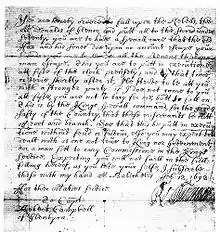 You are hereby ordered to fall upon the Rebells, the
McDonalds of Glenco, and putt all to the sword under
seventy, you are to have a speciall care that the old
fox and his sones doe upon no account escape your
hands, you are to secure all the avenues that no
man escape. This you are to putt in execution
att fyve of the clock precisely; and by that time,
or very shortly after it, I'll strive to be att you
with a stronger party. if I doe not come to you
att fyve, you are not to tarry for me, but to fall on.
This is by the Kings speciall command, for the good &
safty of the Country, that these miscreants be cutt
off root and branch. See that this be putt in execu
tione without feud or favour, else you may expect to be
dealt with as one not true to King nor Government
nor a man fitt to carry Commissione in the Kings
Service. Expecting you will not faill in the full
filling hereof, as you love your selfe, I subscribe
these with my hand att Balicholis Feb: 12, 1692
For their Majesties service
To Capt
Robert Campbell
of Glenlyon